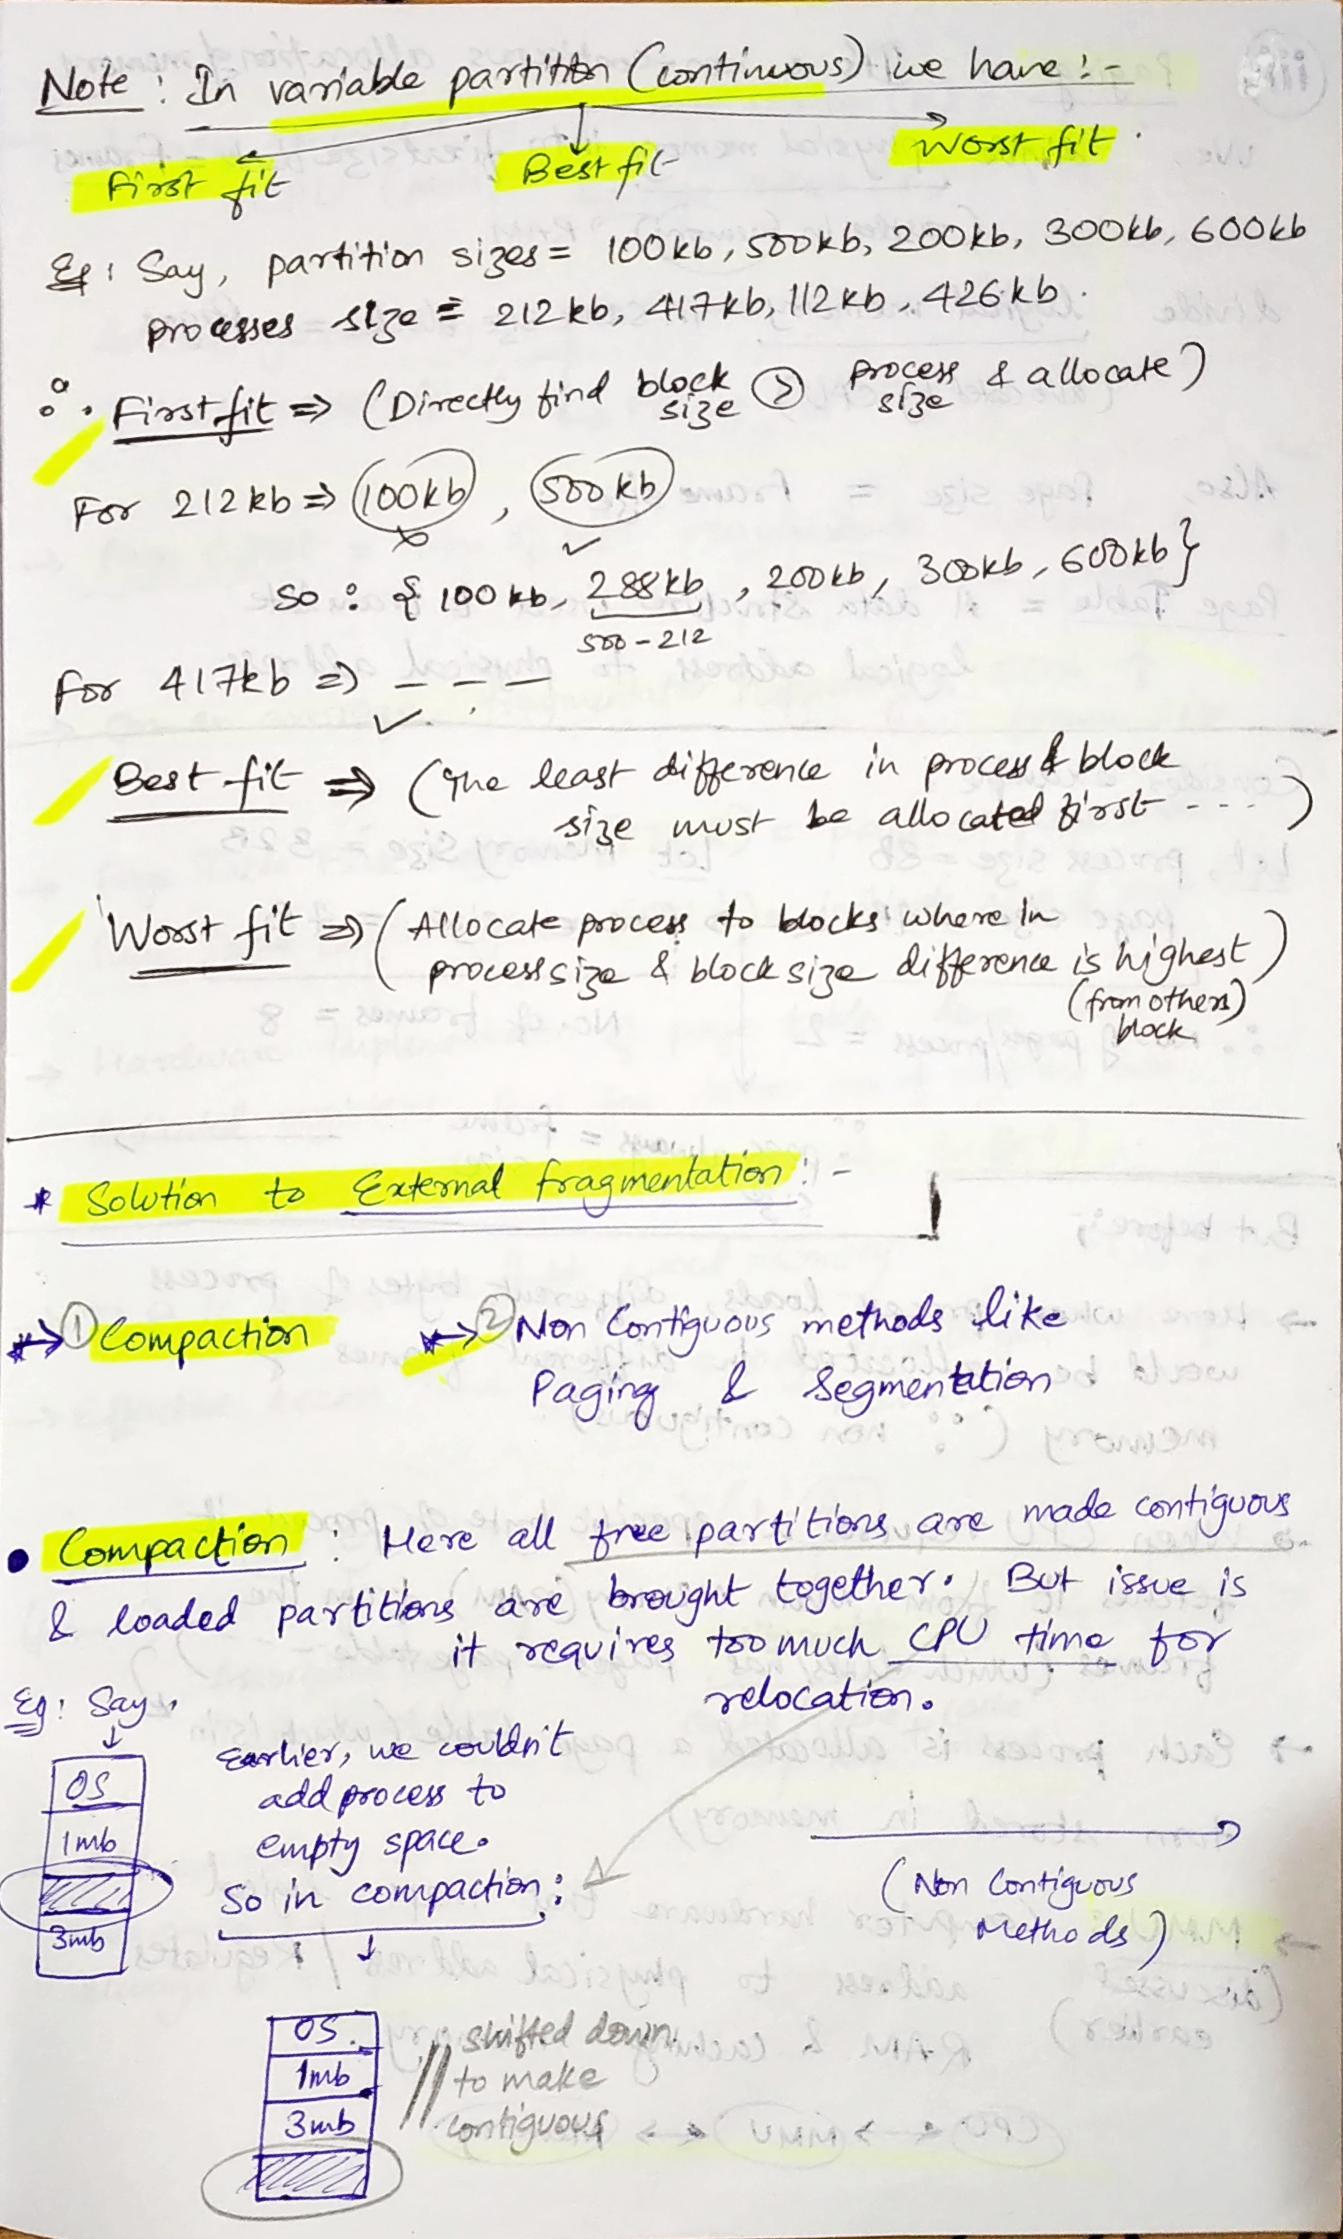 Note : In variable partition (continuous) we have :-
First fit
Best fit
Worst fit
Eg : Say, partition sizes = 100kb, 500kb, 200kb, 300kb, 600kb
processes size = 212kb, 417kb, 112kb, 426kb.
∴ First fit ⇒ (Directly find block size > process size & allocate)
For 212kb ⇒ 100kb, 500kb
× ✓
So : { 100kb, 288kb, 200kb, 300kb, 600kb }
500-212
For 417kb ⇒ - - -
✓
Best fit ⇒ (The least difference in process & block
size must be allocated first ---)
Worst fit ⇒ (Allocate process to blocks where in
process size & block size difference is highest)
(from others)
block
* Solution to External fragmentation :-
→ ① Compaction
→ ② Non Contiguous methods like
Paging & Segmentation
• Compaction : Here all free partitions are made contiguous
& loaded partitions are brought together. But issue is
it requires too much CPU time for
relocation.
Eg: Say,
OS
1mb
3mb
Earlier, we couldn't
add process to
empty space.
So in compaction :
(Non Contiguous
Methods)
OS
1mb
3mb
shifted down
to make
contiguous